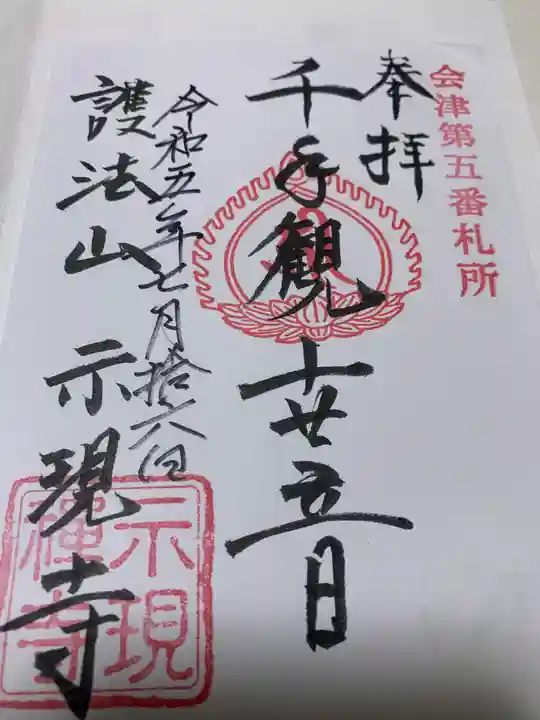 会津第五番札所
奉拝
千手観
令和五年七月拾六日
護法山 示現寺
示現
禅寺